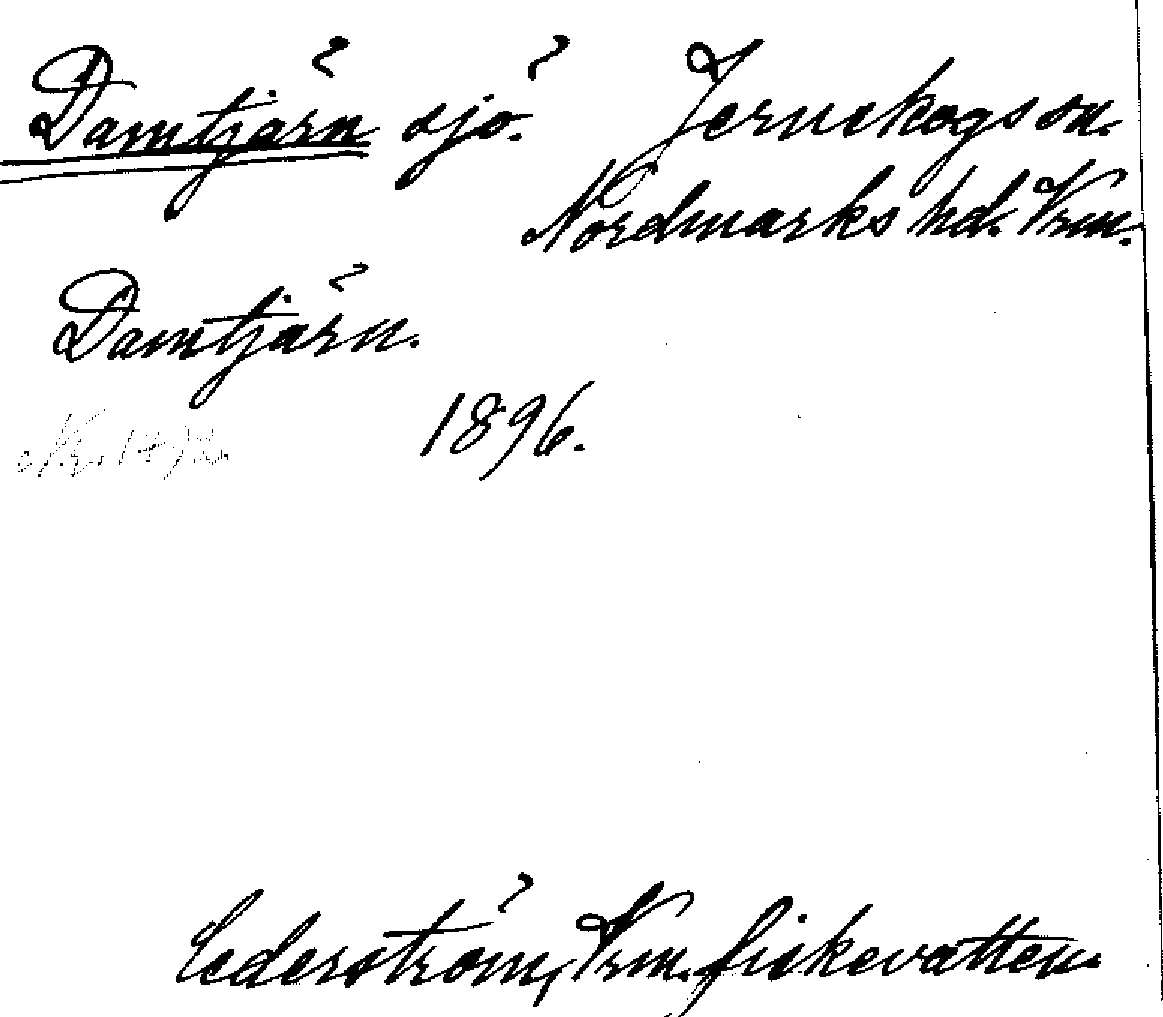 Damtjärn sjö. Jernskogs sn.
Nordmarks hd. Vrm.
Damtjärn.
1896.
Cederström, Vrm. fiskevatten.